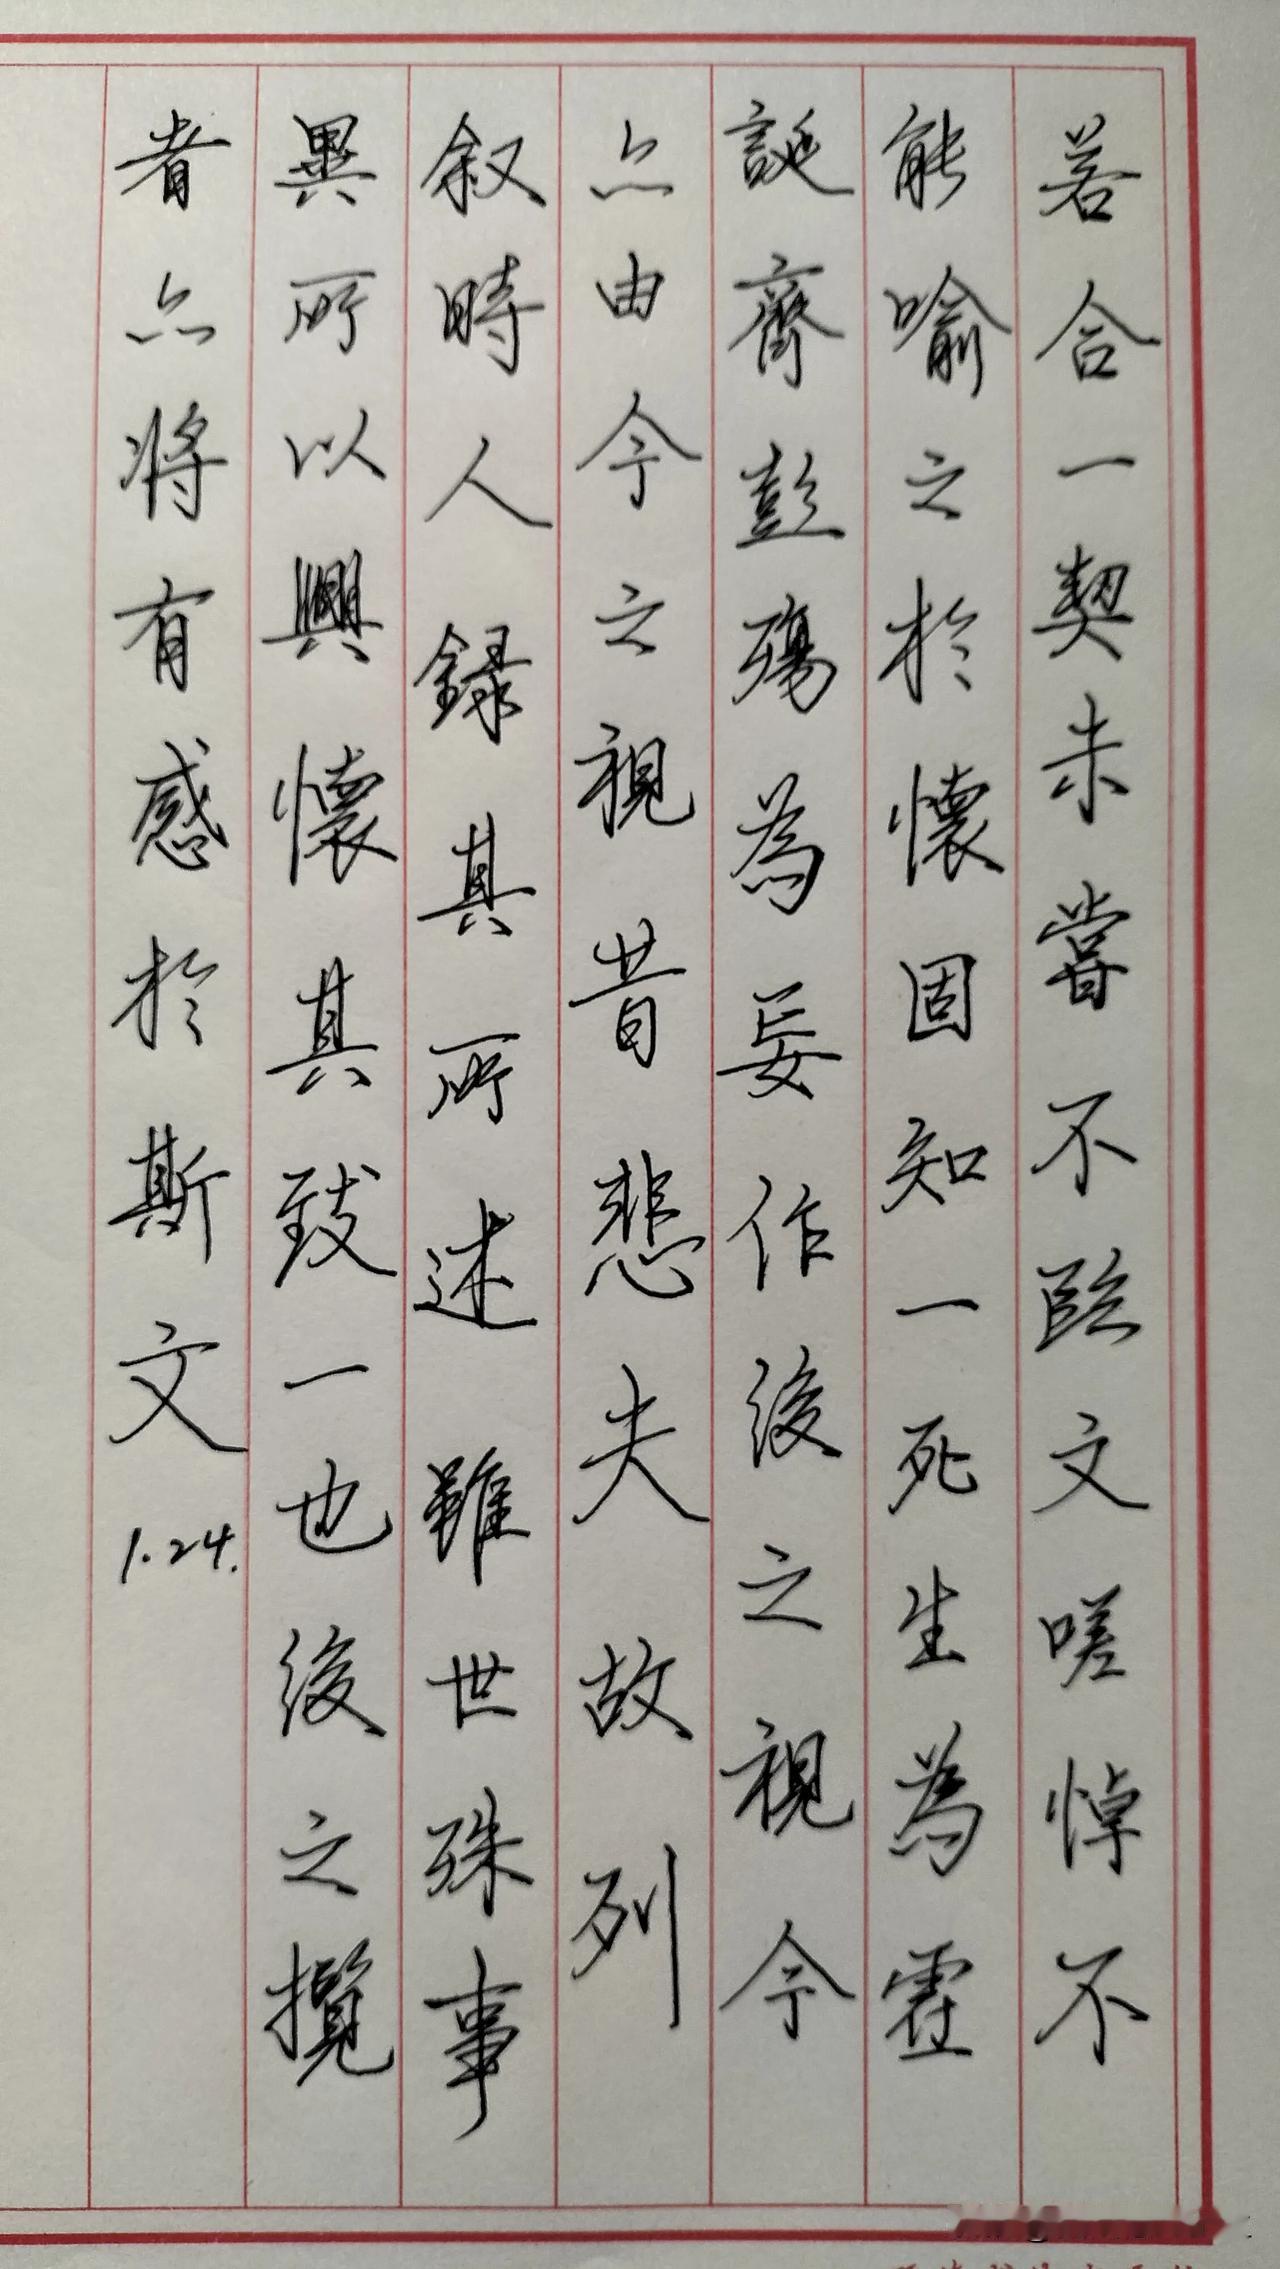 若合一契未嘗不臨文嗟悼不
能喻之於懷固知一死生為虚
誕齊彭殤為妄作後之視今
亦由今之視昔悲夫故列
叙時人録其所述雖世殊事
異所以興懷其致一也後之攬
者亦將有感於斯文
1.24.